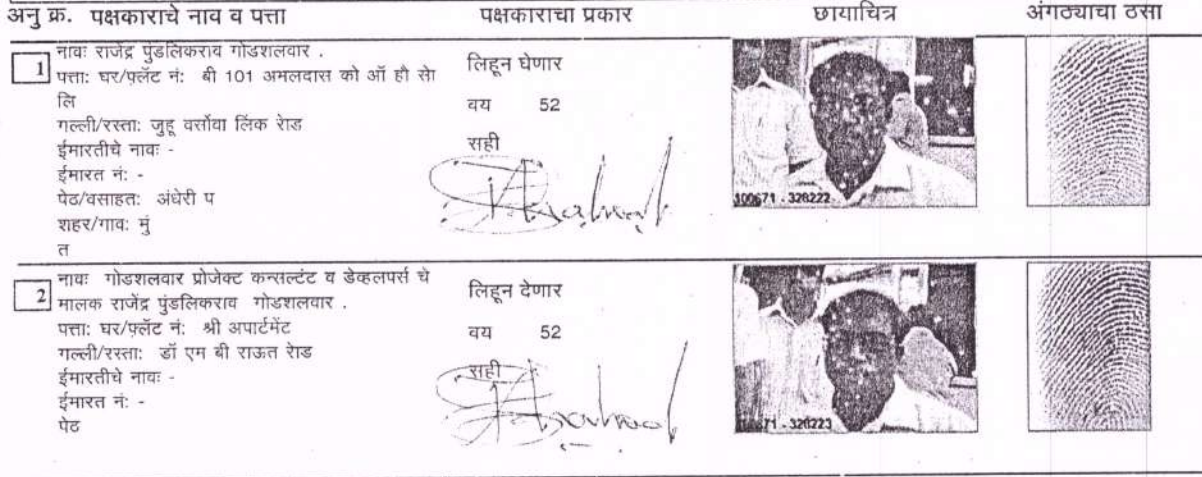 अनु क्र. पक्षकाराचे नाव व पत्ता पक्षकाराचा प्रकार छायाचित्र अंगठ्याचा ठसा
1 नावः राजेंद्र पुंडलिकराव गोडशलवार . लिहून घेणार
पत्ता: घर/फ़्लॅट नं: बी 101 अमलदास को ऑ हौ सेा
लि वय 52
गल्ली/रस्ता: जुहू वर्सोवा लिंक रेाड
ईमारतीचे नावः - सही
ईमारत नं: -
पेठ/वसाहत: अंधेरी प
शहर/गाव: मुं
त
100671 - 326222
2 नावः गोडशलवार प्रोजेक्ट कन्सल्टंट व डेव्हलपर्स चे लिहून देणार
मालक राजेंद्र पुंडलिकराव गोडशलवार .
पत्ता: घर/फ़्लॅट नं: श्री अपार्टमेंट वय 52
गल्ली/रस्ता: डॉ एम बी राऊत रेाड
ईमारतीचे नावः - सही
ईमारत नं: -
पेठ
- 326223